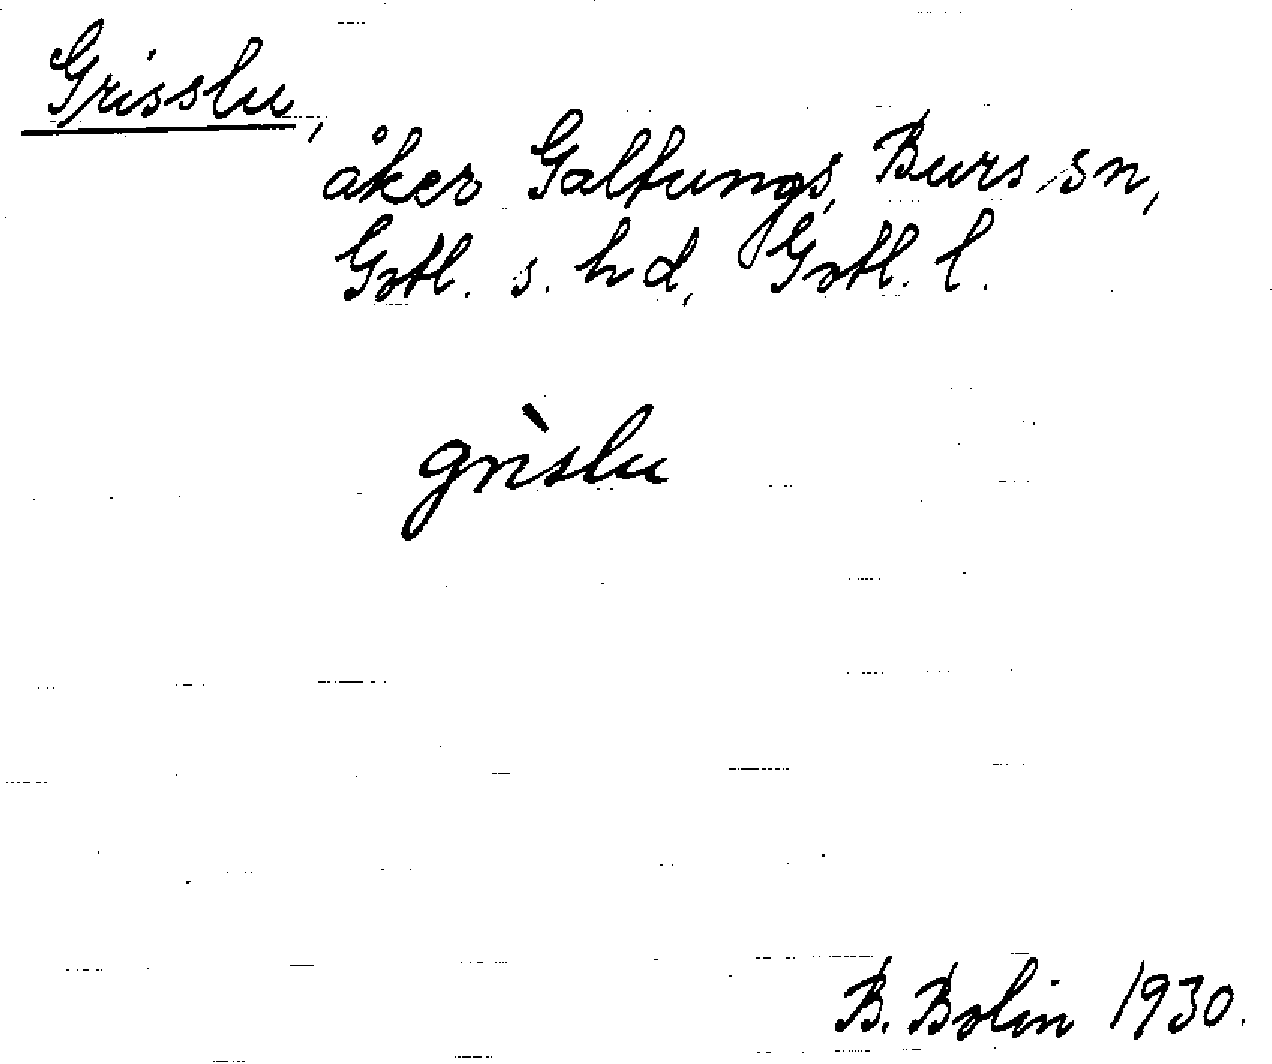 Grisslu,
åker Galtungs, Burs sn,
Gotl. s. hd, Gotl. l.
grìslu
B. Bolin 1930.